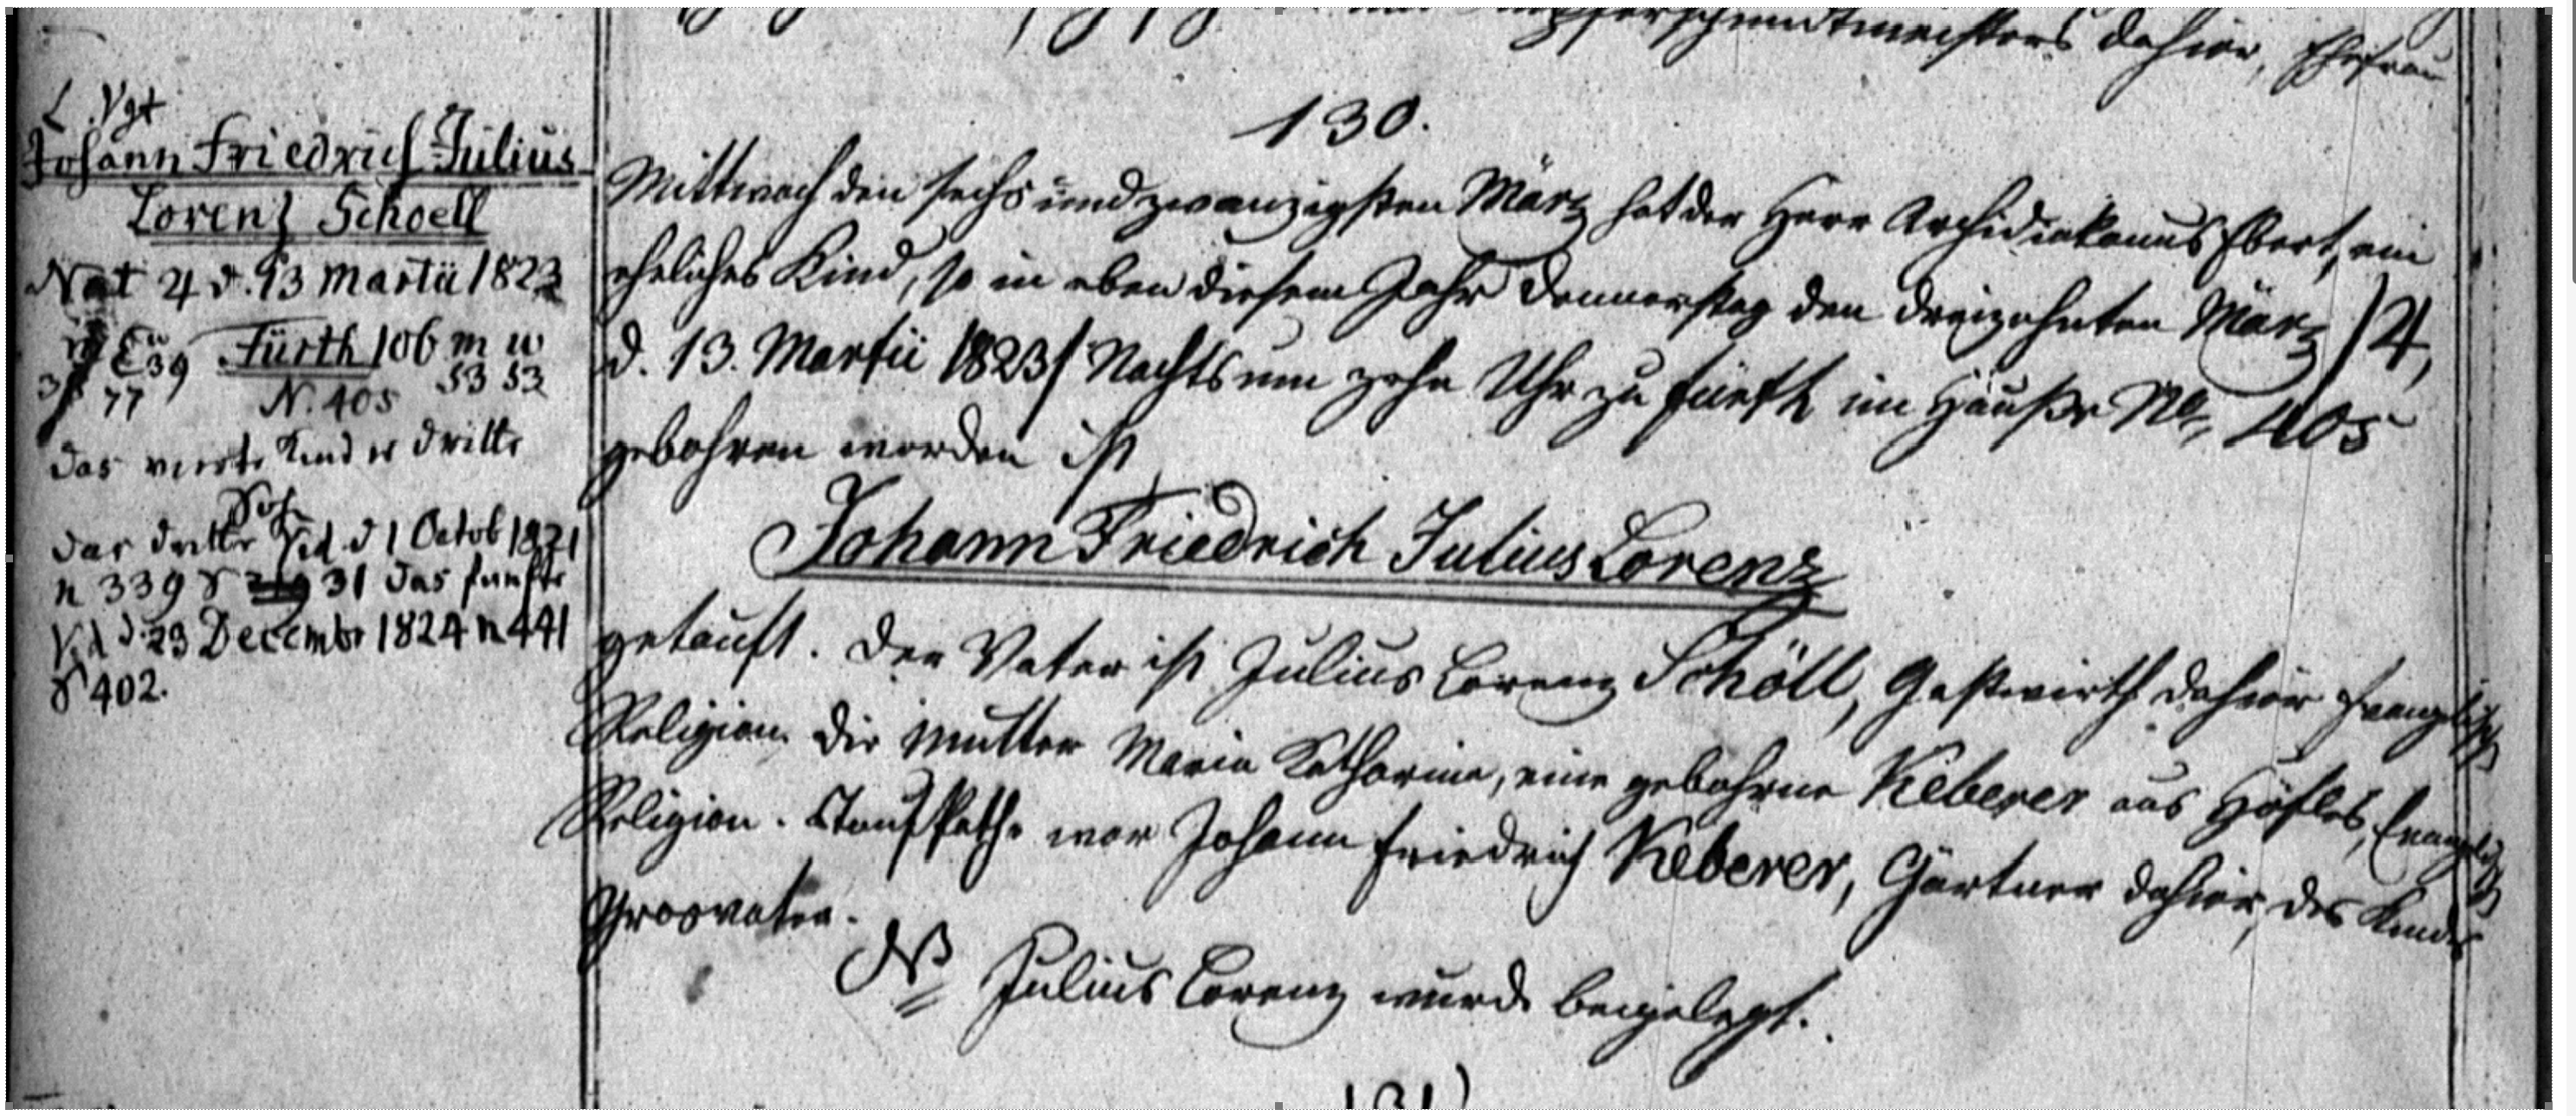 Kupferschmidtmeisters dahier, Ehefrau
L. Vgt
Johann Friedrich Julius
Lorenz Schoell
Nat 4 d. 13 Martii 1823
Fürth 106 m w
N. 405 53 53
77
das vierte Kind der dritte
Sohn
das dritte Vid. d 1 Octob 1821
n 339 31 das fünfte
Vid d. 23 Decembr 1824 n 441
402.
130.
Mittwoch den sechs und zwanzigsten März hat der Herr Archidiakonus Ebert, ein
eheliches Kind, so in eben diesem Jahr Donnerstag den dreizehnten März /4,
d. 13. Martii 1823/ Nachts um zehn Uhr zu Fürth im Hauße No. 405
gebohren worden ist
Johann Friedrich Julius Lorenz
getauft. Der Vater ist Julius Lorenz Schöll, Gastwirth dahier Evangelisch
Religion. Die Mutter Maria Katharina, eine gebohrne Keberer aus Höfles, Evangelisch
Religion. TaufPathe war Johann Friedrich Keberer, Gärtner dahier, des Kindes
Grosvater.
NB Julius Lorenz wurde beigelegt.
131)